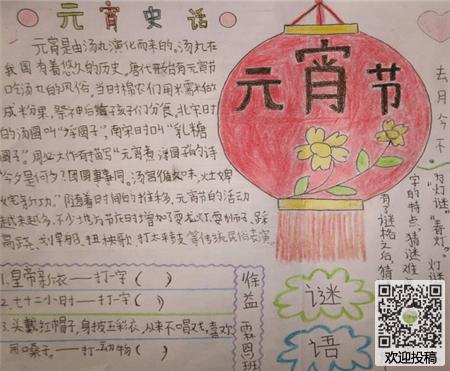 元宵史话
元宵是由汤丸演化而来的,汤丸在
我国有着悠久的历史。唐代就有元宵节
吃汤丸的风俗。当时棉农们用米粉做
成圆果,祭神后给孩子们分食。北宋时
的汤圆叫"浮圆子",南宋时叫"乳糖
圆子"。周必大作有描写"元宵煮浮圆子的诗
今夕是何夕?团圆事事同。汤官
随着时间的推移,元宵节的活动
越来越多,不少地方节庆时增加了耍龙灯、耍狮子、踩
高跷、划旱船、扭秧歌、打太平鼓等传统民俗表演。
元宵节
1.皇帝新衣——打一字( )
2.七十二小时——打一字( )
3.头戴红帽子,身披五彩衣,从来不唱戏,喜欢
吊嗓子。——打一动物( )
谜
语
去月今不
为灯谜"春灯。灯谜
字的特点。猜谜难
有了谜格之后,猜
欢迎投稿